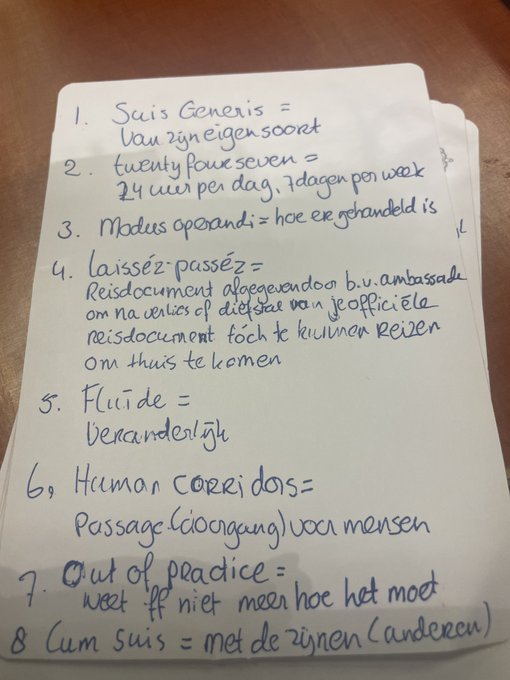 1. Suis Generis =
van zijn eigen soort
2. twenty four seven =
24 uur per dag, 7 dagen per week
3. Modus operandi = hoe er gehandeld is
4. Laisséz-passéz =
Reisdocument afgegeven door b.v. ambassade
om na verlies of diefstal van je officiële
reisdocument tóch te kunnen reizen
om thuis te komen
5. Fluïde =
Veranderlijk
6, Human corridors =
Passage (doorgang) voor mensen
7. Out of practice =
weet ff niet meer hoe het moet
8 Cum suis = met de zijnen (anderen)